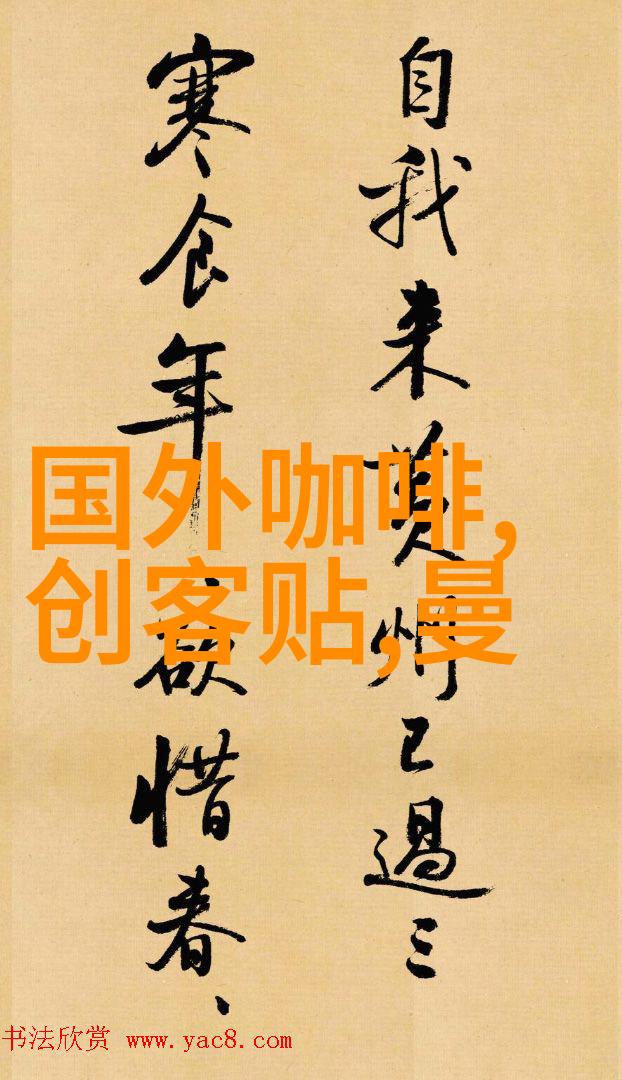 自我来黄州已過三
寒食年年欲惜春、
国外咖啡,
创客贴,曼
书法欣赏 www.yac8.com